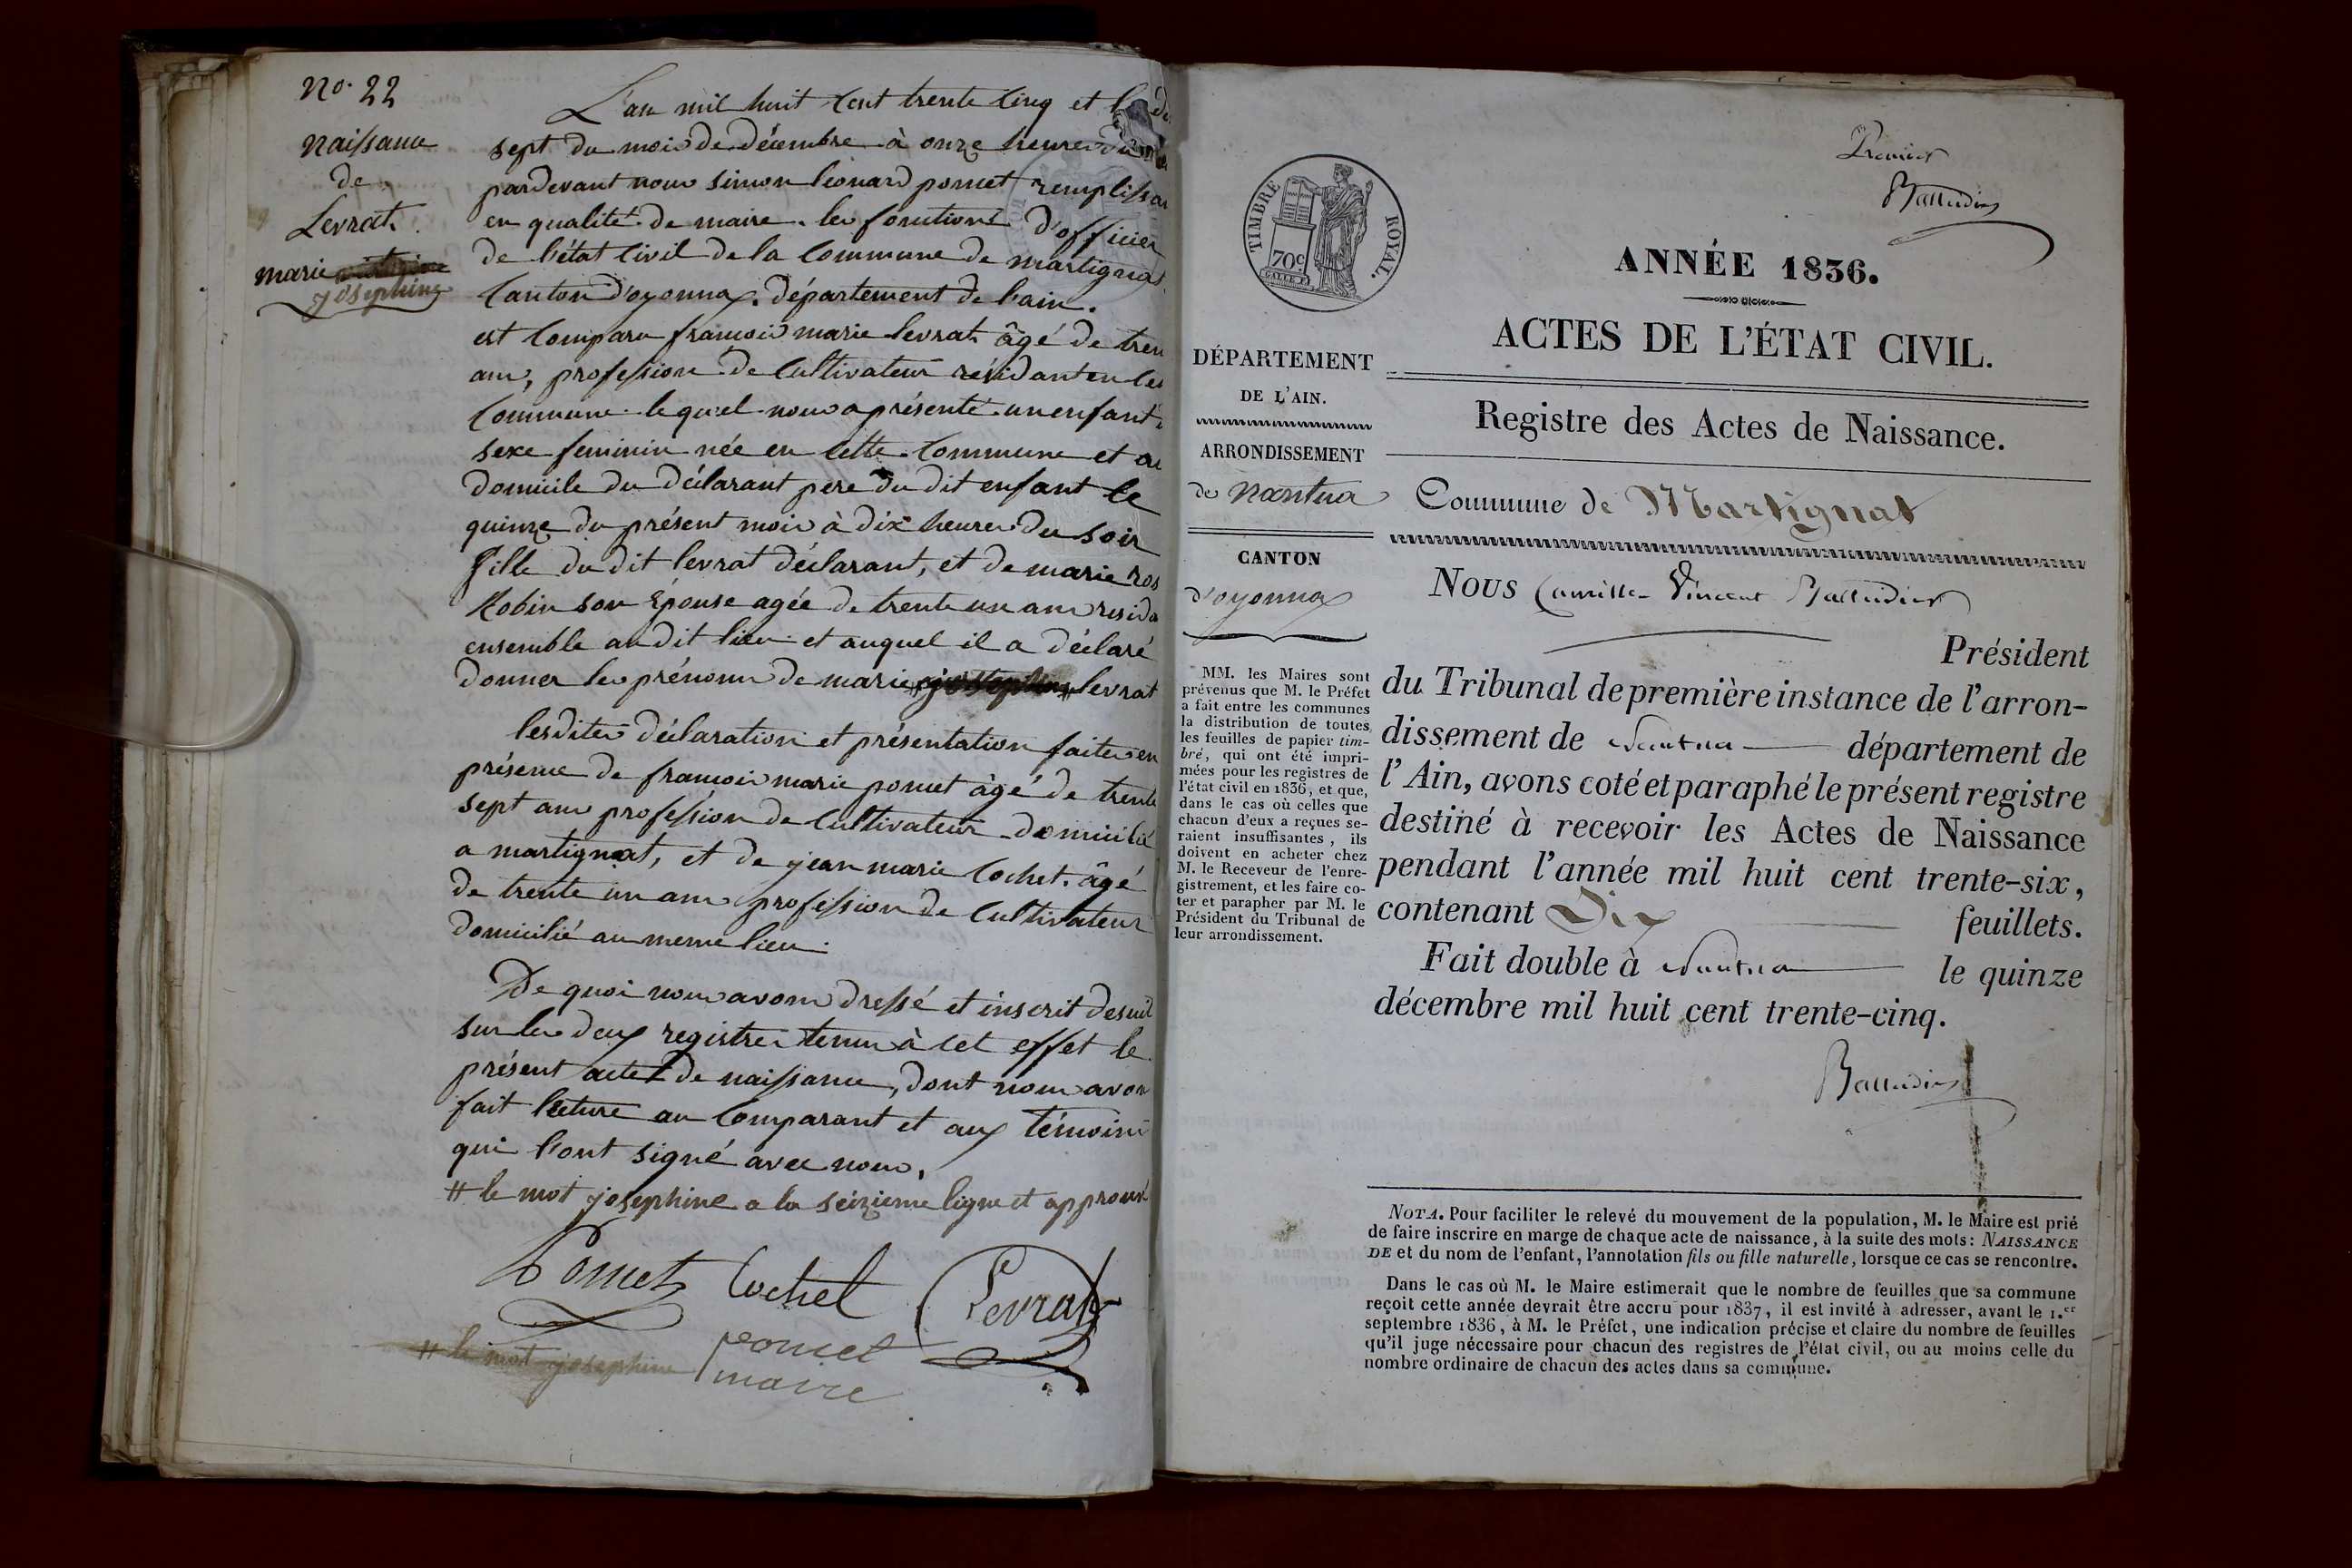 No. 22
Naissance
de
Levrat
marie
josephine
L'an mil huit cent trente cinq et le
sept du mois de décembre à onze heures du
pardevant nous simon léonard pomet remplissa
en qualité de maire les fonctions d'officier
de l'état civil de la Commune de martignat
Canton d'oyonnax, département de l'ain.
est comparu françois marie levrat âgé de tren
ans, profession de Cultivateur résidant en les
Commune lequel nous a présenté un enfant
sexe feminin née en cette Commune et au
domicile du déclarant pere du dit enfant le
quinze du présent mois à dix heures du soir
fille du dit levrat déclarant, et de marie ros
Robin son Epouse agée de trente un ans resida
ensemble au dit lieu et auquel il a déclaré
donner les prénoms de marie josephine levrat
lesdites déclaration et présentation faites en
présence de françois marie pomet âgé de trente
sept ans profession de Cultivateur domicilié
a martignat, et de jean marie Cochet âgé
de trente un ans profession de Cultivateur
domicilié au meme lieu.
De quoi nous avons dressé et inscrit desuit
sur les deux registres tenus à cet effet le
présent acte de naissance, dont nous avon
fait lecture au Comparant et aux témoins
qui l'ont signé avec nous.
# le mot josephine a la seizieme ligne et approuvé
Pomet Cochet Levrat
# le mot josephine pomet
maire
Premier
Balleidier
TIMBRE ROYAL.
70c
ANNÉE 1836.
ACTES DE L'ÉTAT CIVIL.
Registre des Actes de Naissance.
DÉPARTEMENT
DE L'AIN.
ARRONDISSEMENT
de Nantua
CANTON
d'oyonnax
MM. les Maires sont
prévenus que M. le Préfet
a fait entre les communes
la distribution de toutes
les feuilles de papier tim-
bré, qui ont été impri-
mées pour les registres de
l'état civil en 1836, et que,
dans le cas où celles que
chacun d'eux a reçues se-
raient insuffisantes, ils
doivent en acheter chez
M. le Receveur de l'enre-
gistrement, et les faire co-
ter et parapher par M. le
Président du Tribunal de
leur arrondissement.
Commune de Martignat
Nous Camille Vincent Balleidier
Président
du Tribunal de première instance de l'arron-
dissement de Nantua département de
l'Ain, avons coté et paraphé le présent registre
destiné à recevoir les Actes de Naissance
pendant l'année mil huit cent trente-six,
contenant Dix feuillets.
Fait double à Nantua le quinze
décembre mil huit cent trente-cinq.
Balleidier
NOTA. Pour faciliter le relevé du mouvement de la population, M. le Maire est prié
de faire inscrire en marge de chaque acte de naissance, à la suite des mots: NAISSANCE
DE et du nom de l'enfant, l'annotation fils ou fille naturelle, lorsque ce cas se rencontre.
Dans le cas où M. le Maire estimerait que le nombre de feuilles que sa commune
reçoit cette année devrait être accru pour 1837, il est invité à adresser, avant le 1.er
septembre 1836, à M. le Préfet, une indication précise et claire du nombre de feuilles
qu'il juge nécessaire pour chacun des registres de l'état civil, ou au moins celle du
nombre ordinaire de chacun des actes dans sa commune.